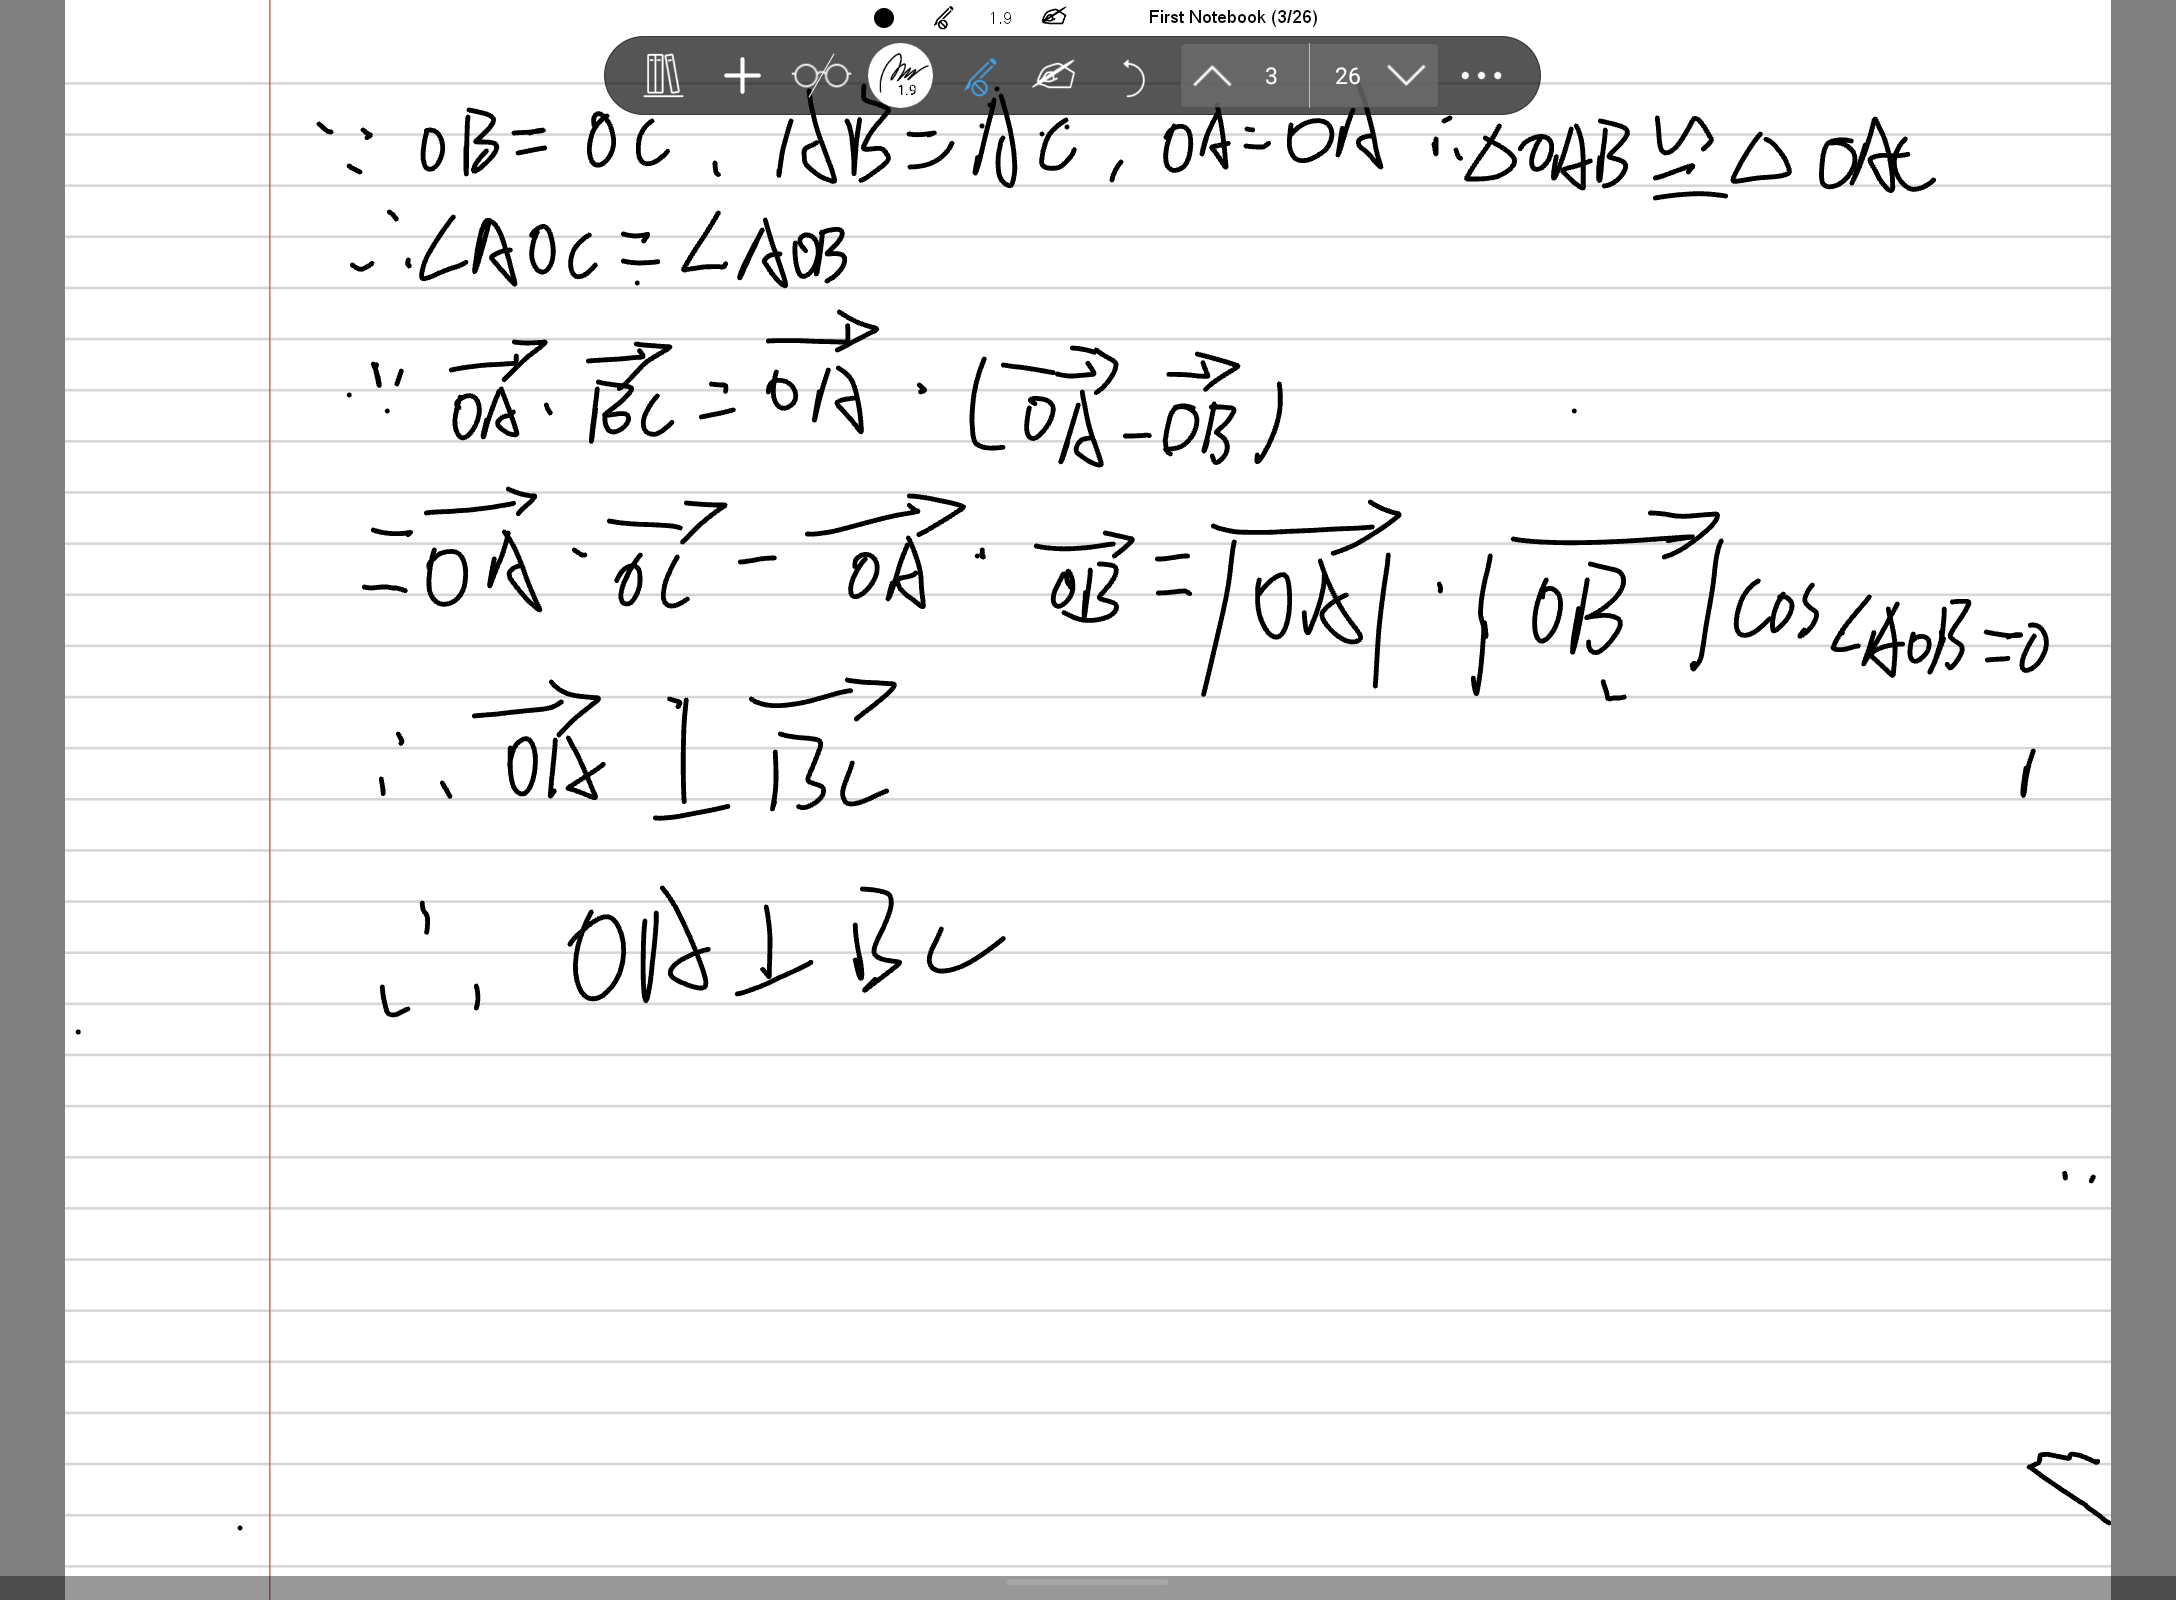 1.9 First Notebook (3/26)
1.9 3 26
∵ OB = OC, AB = AC, OA = OA ∴ △OAB ≌ △OAC
∴ ∠AOC = ∠AOB
∵ \overrightarrow{OA} · \overrightarrow{BC} = \overrightarrow{OA} · (\overrightarrow{OA} - \overrightarrow{OB})
= \overrightarrow{OA} · \overrightarrow{OC} - \overrightarrow{OA} · \overrightarrow{OB} = |\overrightarrow{OA}| · |\overrightarrow{OB}| cos∠AOB = 0
∴ \overrightarrow{OA} ⊥ \overrightarrow{BC}
∴ OA ⊥ BC